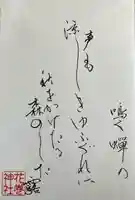 鳴く蝉の
声も
涼しきゆふぐれに
秋をかけたる
森のした露
神社